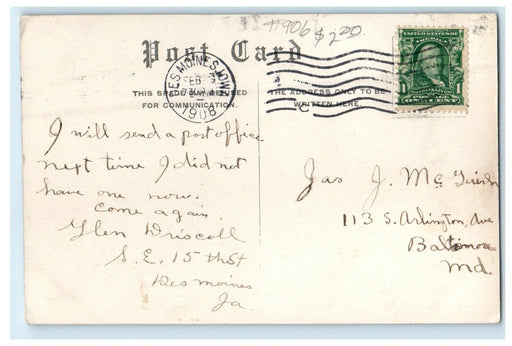 #906 $2.00
Post Card
THIS SPACE
FOR COMMUNICATION.
THE ADDRESS ONLY TO BE
WRITTEN HERE
DES MOINES, IOWA
FEB
1908
1
I will send a post office
next time I did not
have one now.
Come again.
Glen Driscoll
S. E. 15 th St
Des Moines
Ia.
Jas J. Mc
113 S. Arlington, Ave
Baltimore
Md.